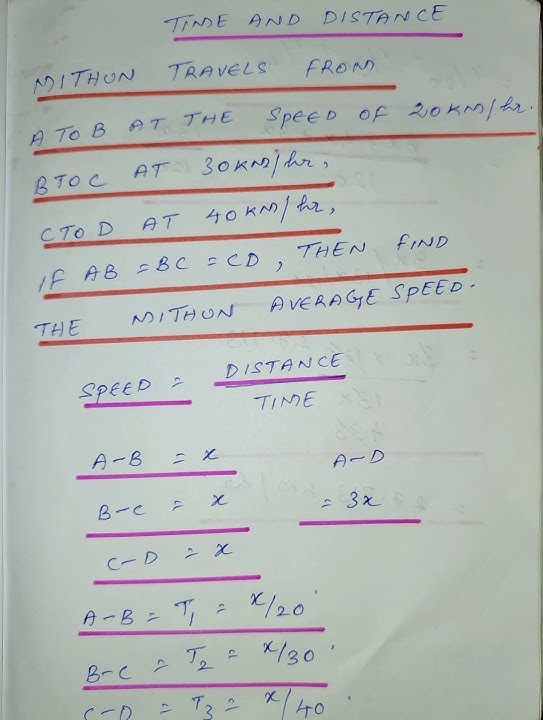 TIME AND DISTANCE
MITHUN TRAVELS FROM
A TO B AT THE SPEED OF 20KM/hr.
B TO C AT 30KM/hr,
C TO D AT 40KM/hr,
IF AB = BC = CD, THEN FIND
THE MITHUN AVERAGE SPEED.
SPEED = DISTANCE
TIME
A-B = x A-D
B-C = x = 3x
C-D = x
A-B = T1 = x/20
B-C = T2 = x/30
C-D = T3 = x/40